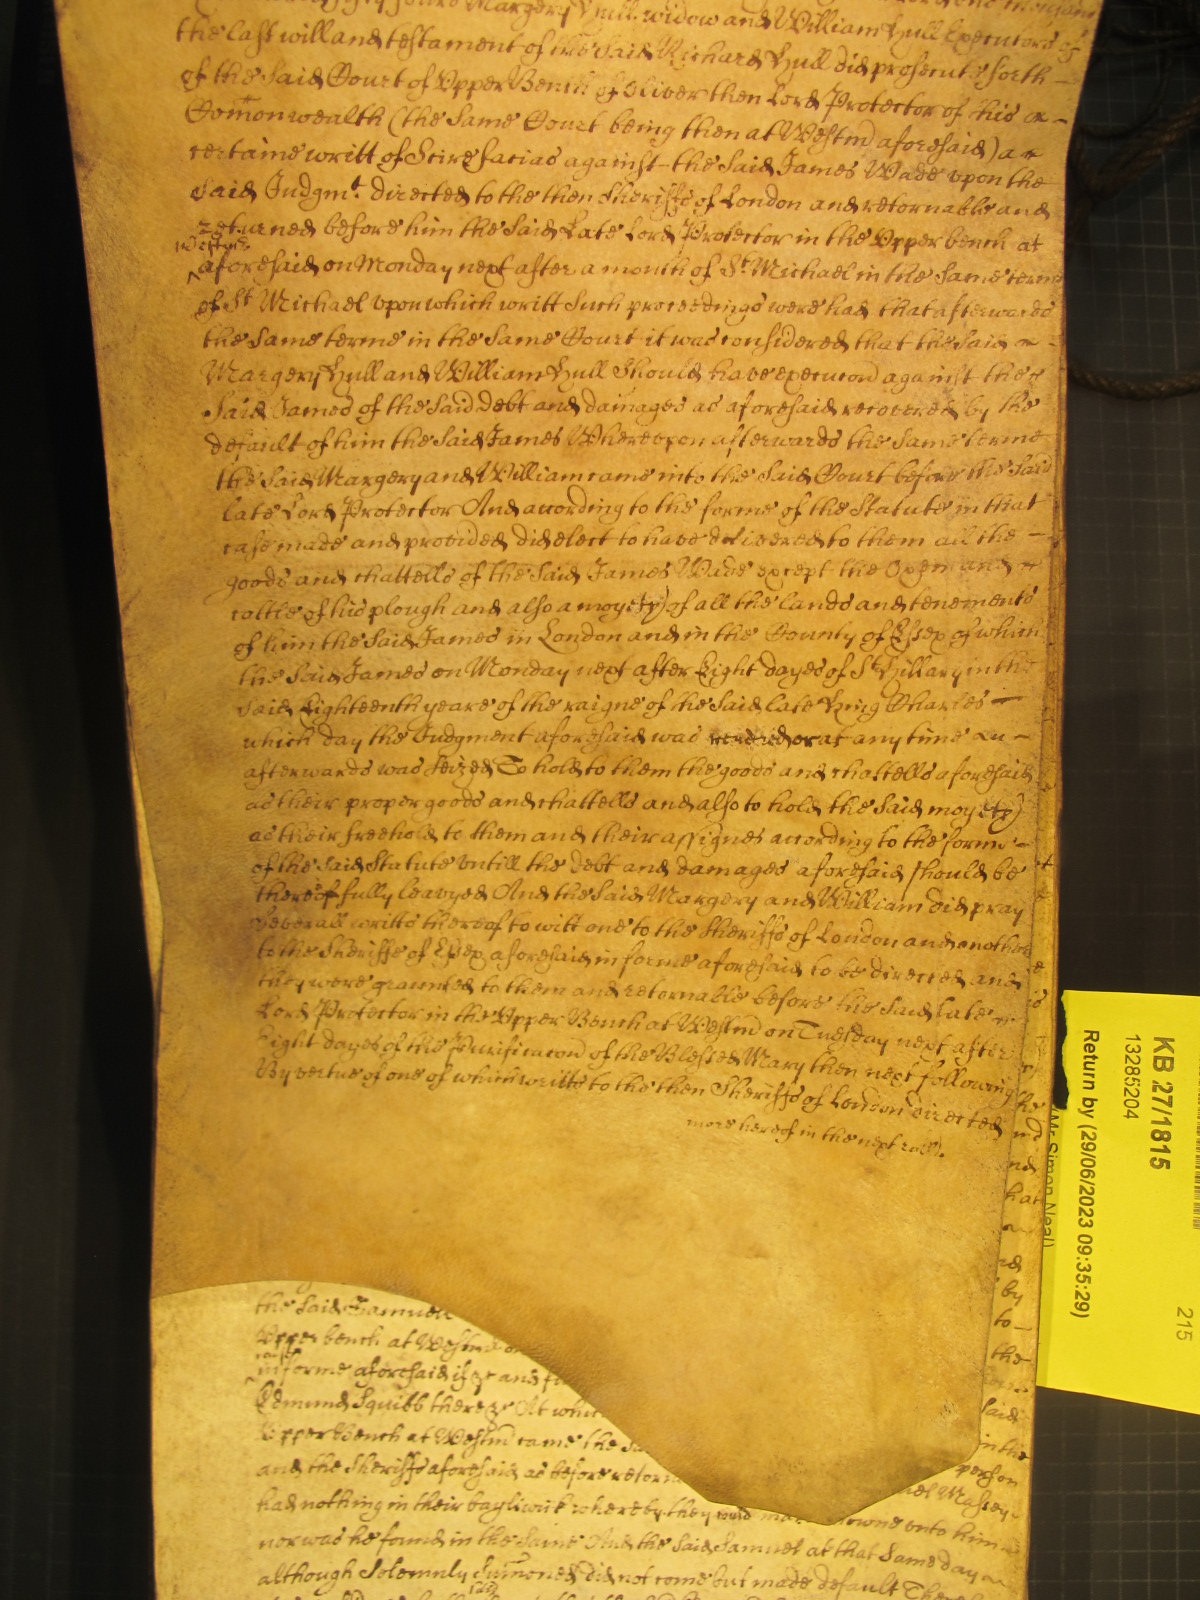 Margery Hull widow and William Hull Executors of
the last will and testament of the said Richard Hull did prosecute forth
of the said Court of Upper Bench of Oliver then Lord Protector of this
Comon wealth (the same Court being then at Westm aforesaid) a
certaine writt of Scire facias against the said James Wade upon the
said Judgmt. directed to the then Sheriffs of London and retornable and
returned before him the said Late Lord Protector in the Upper bench at
Westmr
aforesaid on Monday next after a month of St. Michael in the same terme
of St Michael upon which writt such proceedings were had that afterwards
the same terme in the same Court it was considered that the said
Margery Hull and William Hull should have execucon against the
said James of the said debt and damages as aforesaid recovered by the
default of him the said James Whereupon afterwards the same terme
the said Margery and William came into the said Court before the said
late Lord Protector And according to the forme of the Statute in that
case made and provided did elect to have delivered to them all the
goods and chattells of the said James Wade except the Oxen and
cattle of his plough and also a moyety of all the lands and tenements
of him the said James in London and in the County of Essex of which
the said James on Monday next after Eight dayes of St Hillary in the
said Eighteenth yeare of the raigne of the said late King Charles
which day the Judgment aforesaid was or at any time
afterwards was seized To hold to them the goods and chattells aforesaid
as their proper goods and chattells and also to hold the said moyety
as their freehold to them and their assignes according to the forme
of the said Statute untill the debt and damages aforesaid should be
thereof fully leavyed And the said Margery and William did pray
severall writts thereof to witt one to the Sheriffs of London and another
to the Sheriffe of Essex aforesaid in forme aforesaid to be directed and
they were graunted to them and retornable before the said late
Lord Protector in the Upper Bench at Westm on Tuesday next after
Eight dayes of the Purificacon of the Blessed Mary then next following
By vertue of one of which writts to the then Sheriffs of London directed
more hereof in the next roll.
the said Samuell
Upper bench at Westm
in forme aforesaid if &c and
Edmund Squibb there &c At
Upper Bench at Westm came the
and the Sheriffs aforesaid as before
had nothing in their bayliwick whereby they unto him
nor was he found in the same And the said Samuel at that same day
although solemnly sumoned did not come but made default
hat
by
to
the
said
in the
person
KB 27/1815
13285204
Return by (29/06/2023 09:35:29)
(Mr Simon Neal)
215